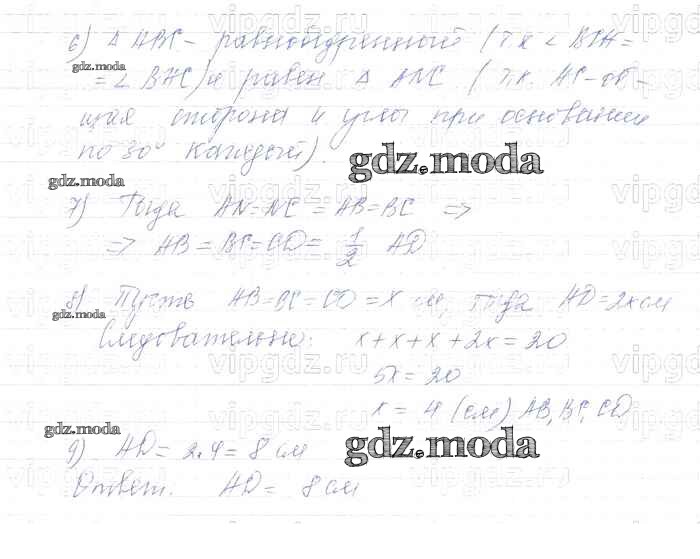 6) Δ ABC - равнобедренный (т.к ∠ BCA =
= ∠ BAC) и равен Δ ANC (т.к. AC - об-
щая сторона и углы при основании
по 30° каждый).
7) Тогда AN = NC = AB = BC =>
=> AB = BC = CD = 1/2 AD
8) Пусть AB = BC = CD = x см, тогда AD = 2x см
Следовательно: x + x + x + 2x = 20
5x = 20
x = 4 (см) AB, BC, CD
9) AD = 2·4 = 8 см
Ответ: AD = 8 см
gdz.moda
gdz.moda
gdz.moda
gdz.moda
gdz.moda
gdz.moda